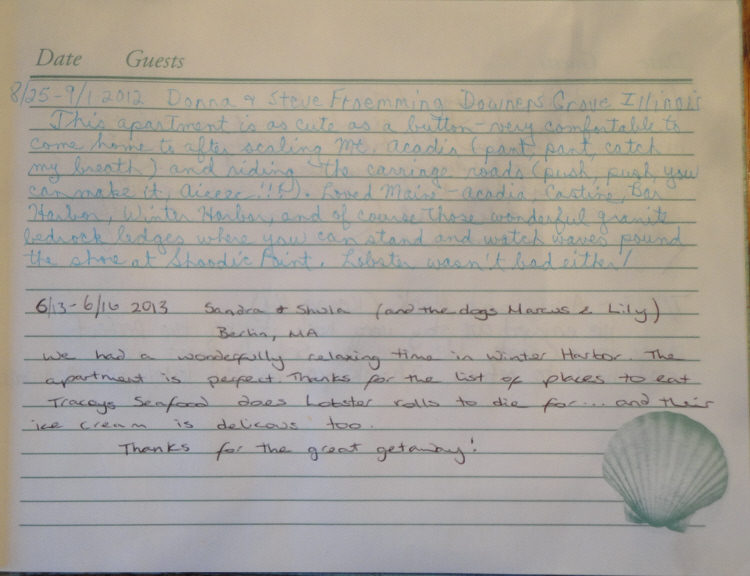 Date Guests
8/25-9/1 2012 Donna & Steve Froemming Downers Grove Illinois
This apartment is as cute as a button - very comfortable to
come home to after scaling Mt. Acadia (pant, pant, catch
my breath) and riding the carriage roads (push, push, you
can make it, Aieeee!!!). Loved Maine - Acadia, Castine, Bar
Harbor, Winter Harbor, and of course those wonderful granite
bedrock ledges where you can stand and watch waves pound
the shore at Shoodic Point. Lobster wasn't bad either!
6/13-6/16 2013 Sandra & Shula (and the dogs Marcus & Lily)
Berlin, MA
We had a wonderfully relaxing time in Winter Harbor. The
apartment is perfect. Thanks for the list of places to eat
Traceys Seafood does Lobster rolls to die for... and their
ice cream is delicous too.
Thanks for the great getaway!